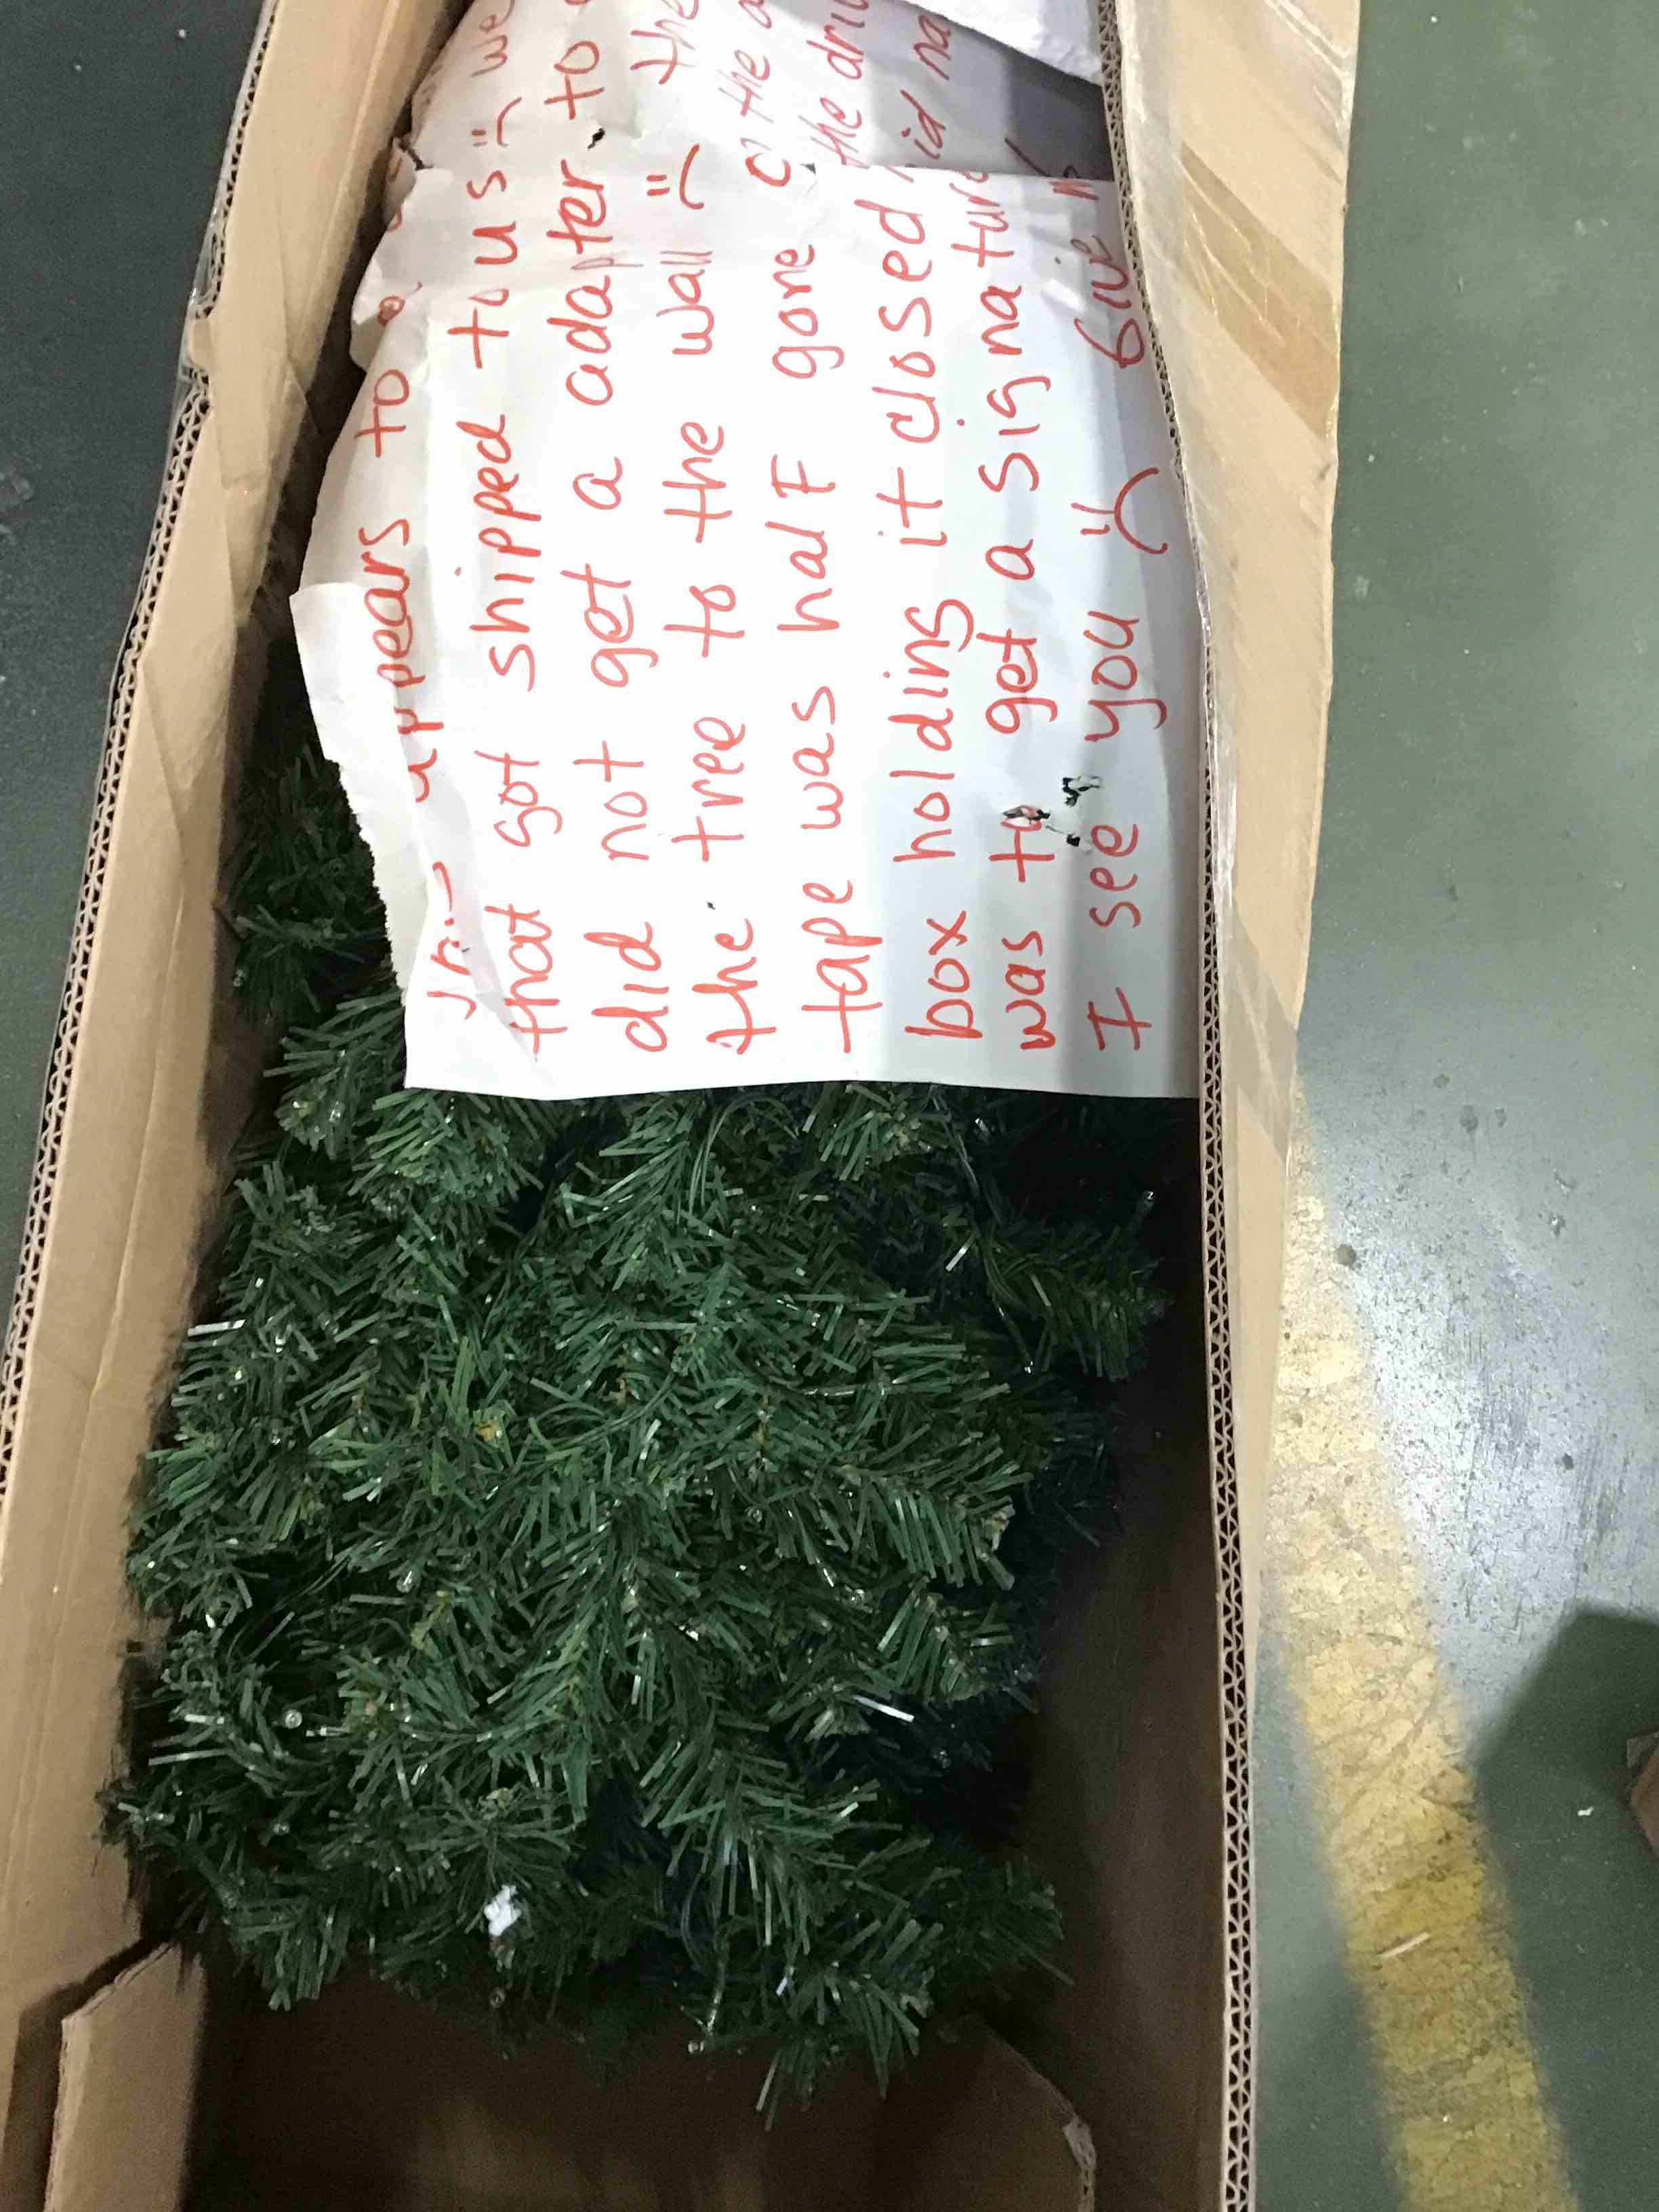 This appears to a
that got shipped to us :( we
did not get a adapter to
the tree to the wall :( the
tape was half gone of the
box holding it closed the
was to get a signature id na
I see you :( Give